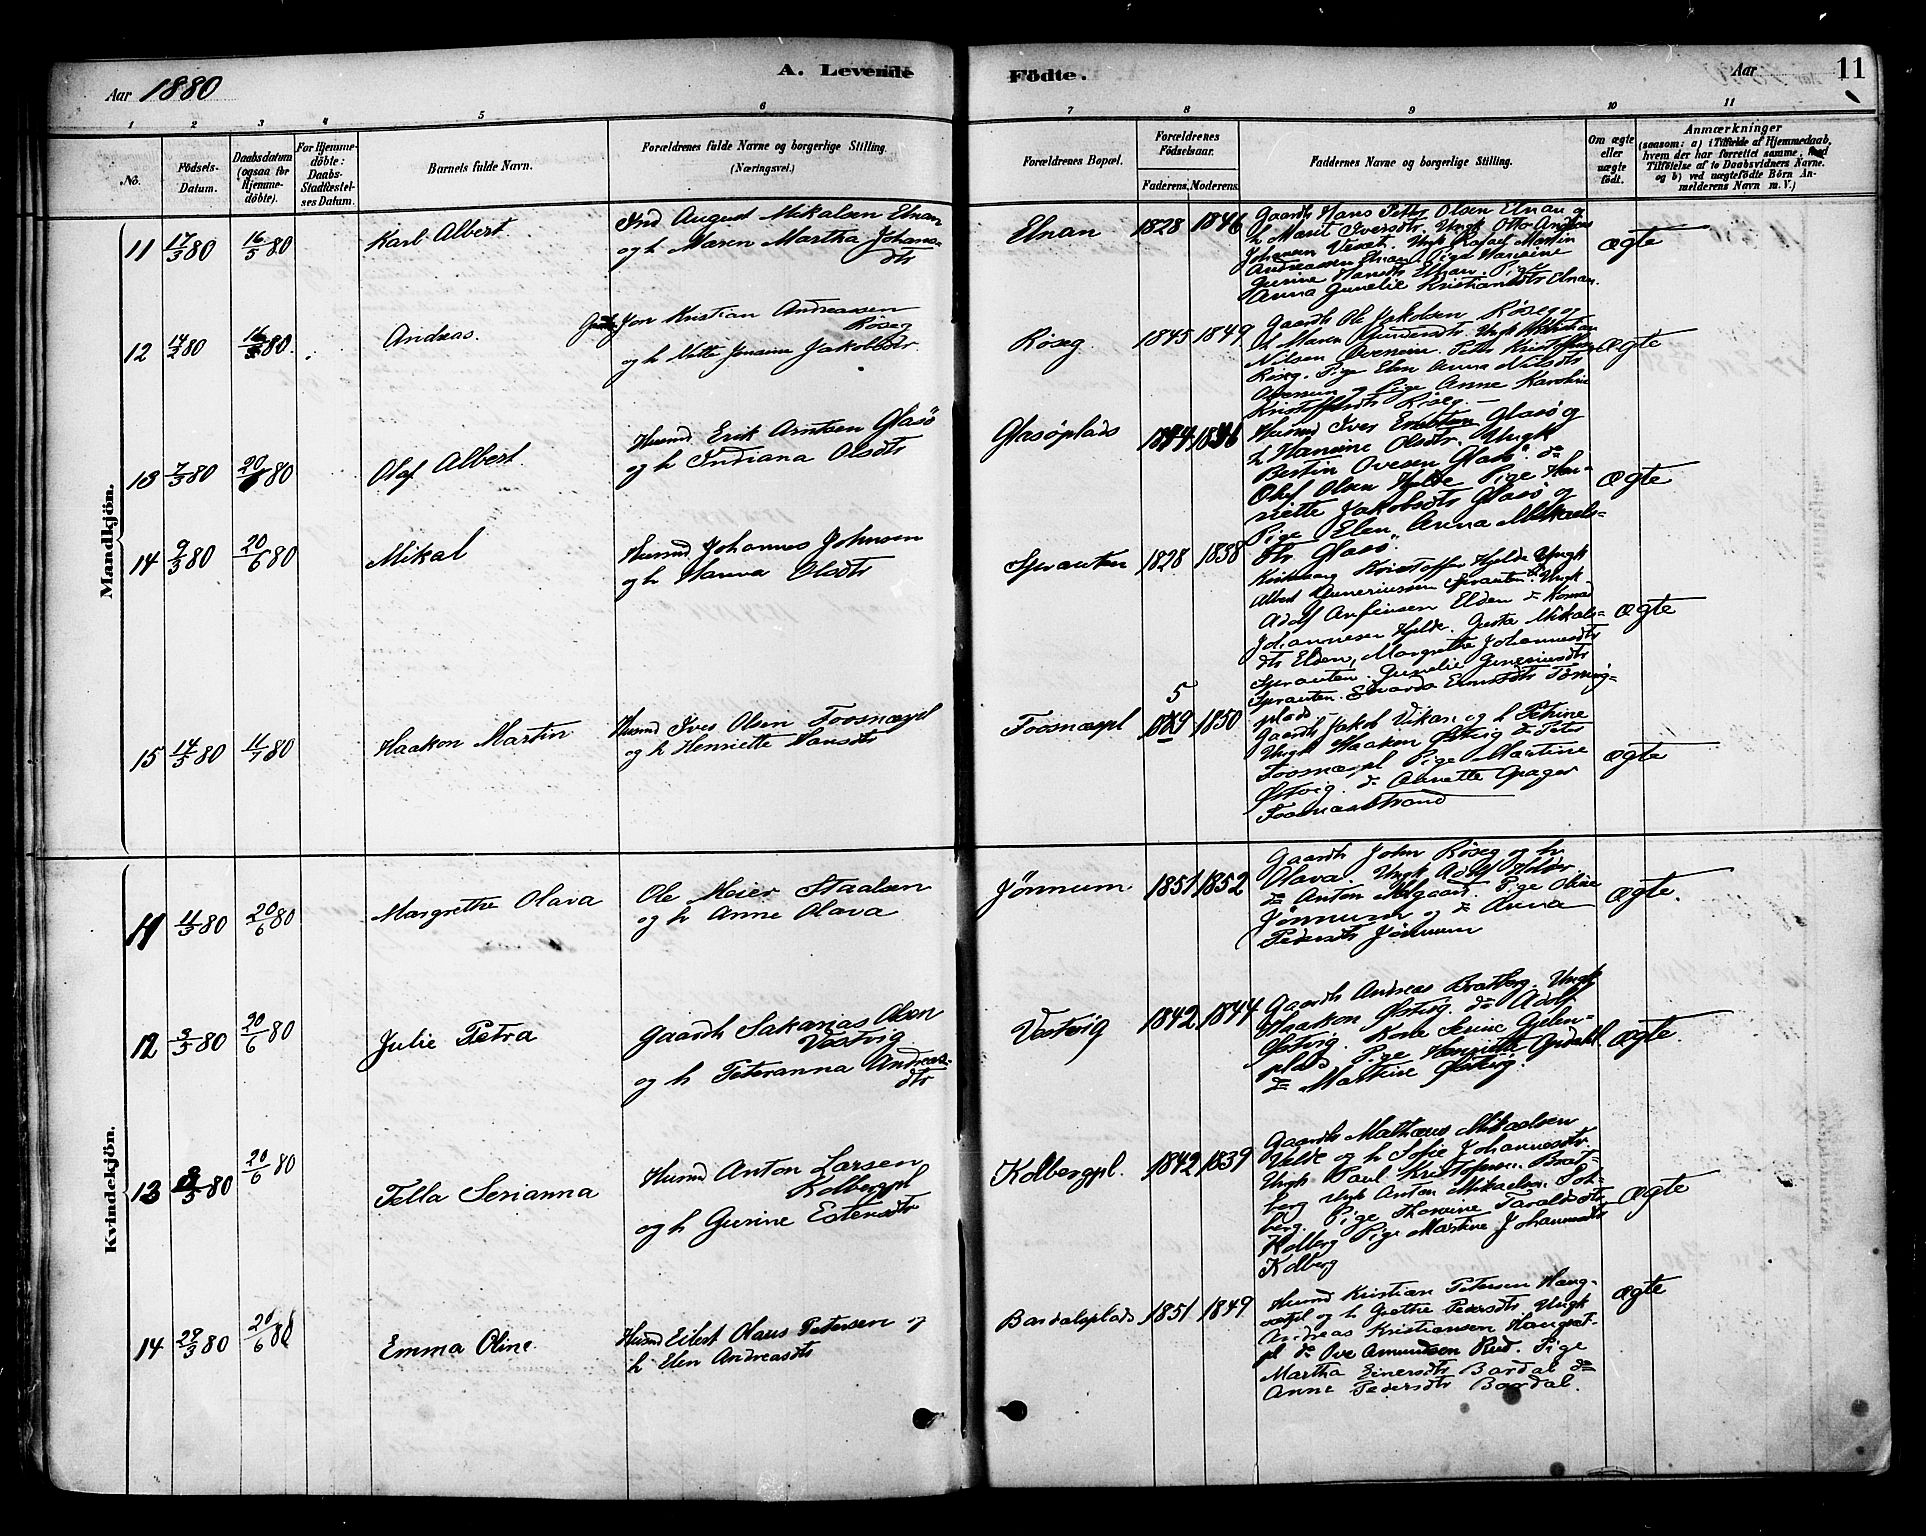 Aar 1880
A. Levende
Födte.
Aar
11
1 2 3 4 5 6 7 8 9 10 11
No.
Födsels-
Datum.
Daabsdatum
(ogsaa for
Hjemme-
döbte).
For Hjemme-
döbte:
Daabs-
Stadfæstel-
ses Datum.
Barnets fulde Navn.
Forældrenes fulde Navne og borgerlige Stilling.
(Næringsvei.)
Forældrenes Bopæl.
Forældrenes
Födselsaar.
Faderens. Moderens.
Faddernes Navne og borgerlige Stilling.
Om ægte
eller
uægte
født.
Anmærkninger
(saasom: a) i Tilfælde af Hjemmedaab,
hvem der har forrettet samme, med
Tilföielse af to Daabsvidners Navne.
og b) ved uægtefödte Börn An-
melderens Navn m. V.)
Mandkjön.
11 17/3 80 16/5 80 Karl Albert
Ind August Mikalsen Elnan
og h Maren Martha Johans-
dtr
Elnan 1828 1846
Gaardb Hans Petter Olsen Elnan og
h Maret Iversdtr. Ungk Otto Andreas
Johansen Ungk Rafael Martin
Andreassen Elnan Pige Hansine
Gurine Hansdtr Elnan. Pige
Anna Gunelie Kristiansdtr Elnan.
ægte
12 14/3 80 16/5 80. Andreas.
Gaardb Jon Kristian Andreassen
Røseg
og h Nette Jensine Jakobsdr
Røseg 1845 1849
Gaardb Ole Jakobsen Røseg og
h Maren Ungk Kristian
Nilsen Peter Kristoffersen
Røseg. Pige Elen Anna Nilsdtr
og Pige Anne Karoline
Kristoffersdtr Røseg.
ægte
13 7/3 80 20/6 80 Olaf Albert
Husmd Erik Arntsen Glasö
og h Indiana Olsdtr
Glasöplads 1844 1846
Husmd Iver Glasö og
h Hansine Olsdtr. Ungk
Bertin Ovesen Glasö. do
Oluf Olsen Hjelde Pige Hen-
riette Jakobsdtr Glasö og
Pige Elen Anna Mikaels-
dtr Glasö.
ægte
14 9/3 80 20/6 80 Mikal
Husmd Johannes Johnsen
og h Hanna Olsdtr
Sprauten 1828 1838
Kristoffer Hjelde Ungk
Albert Guneriussen Sprauten. Ungk
Adolf Anfinsen Elden do Konrad
Johannesen Hjelde. Gusta Mikals-
dtr Elden, Margrethe Johannesdtr
Sprauten. Gunelie Guneriusdtr
Sprauten. Edvarda Ernstdtr Tørring-
plads
ægte
15 14/5 80 11/7 80 Haakon Martin
Husmd Iver Olsen Foosnæspl
og h Henriette Hansdtr
Foosnæspl 5 1850
Gaardb Jakob Vikan og h Petrine
Ungk Haakon Østvig do Peter
Foosnæspl Pige Martine
Østvig. do Anette Opager
Foosnæsstrand
ægte
Kvindekjön.
11 11/3 80 20/6 80 Margrethe Olava
Ole Meier Staalsen
og h Anne Olava
Jønnum 1851 1852
Gaardb John Røseg og h
Olava Ungk Adolf Hjelde
do Anton Molgaard. Pige Stine
Jønnum og do Anna
Pedersdtr Jønnum
ægte.
12 3/5 80 20/6 80 Julie Petra
Gaardb Sakarias Olsen
Vestvig
og h Peteranna Andreas-
dtr
Vestvig 1842 1844
Gaardb Andreas Bratberg. Ungk
Haakon Østvig. do Adolf
Østvig. Kone Serine
plads Pige Henriette Opdahl
do Martine Østvig.
ægte.
13 8/5 80 20/6 80 Tella Serianna
Husmd Anton Larsen
Kolbergpl
og h Gurine Estensdtr
Kolbergpl. 1842 1839
Gaardb Mathæus Mikaelsen
Velde og h Sofie Johannesdtr.
Ungk Paul Kristofersen Brat-
berg Ungk Anton Mikaelsen
berg. Pige Thorine Taraldsdtr
Kolberg Pige Martine Johannesdtr
Kolberg
ægte
14 28/3 80 20/6 80 Emma Oline
Husmd Eilert Olaus Petersen og
h Elen Andreasdtr
Bardalsplads 1851 1849
Husmd Kristian Petersen Haug-
og h Grethe Pedersdtr Ungk
Andreas Kristiansen
pl do Ove Amundsen Rud. Pige
Martha Einersdtr Bardal do
Anne Pedersdtr Bardal.
ægte